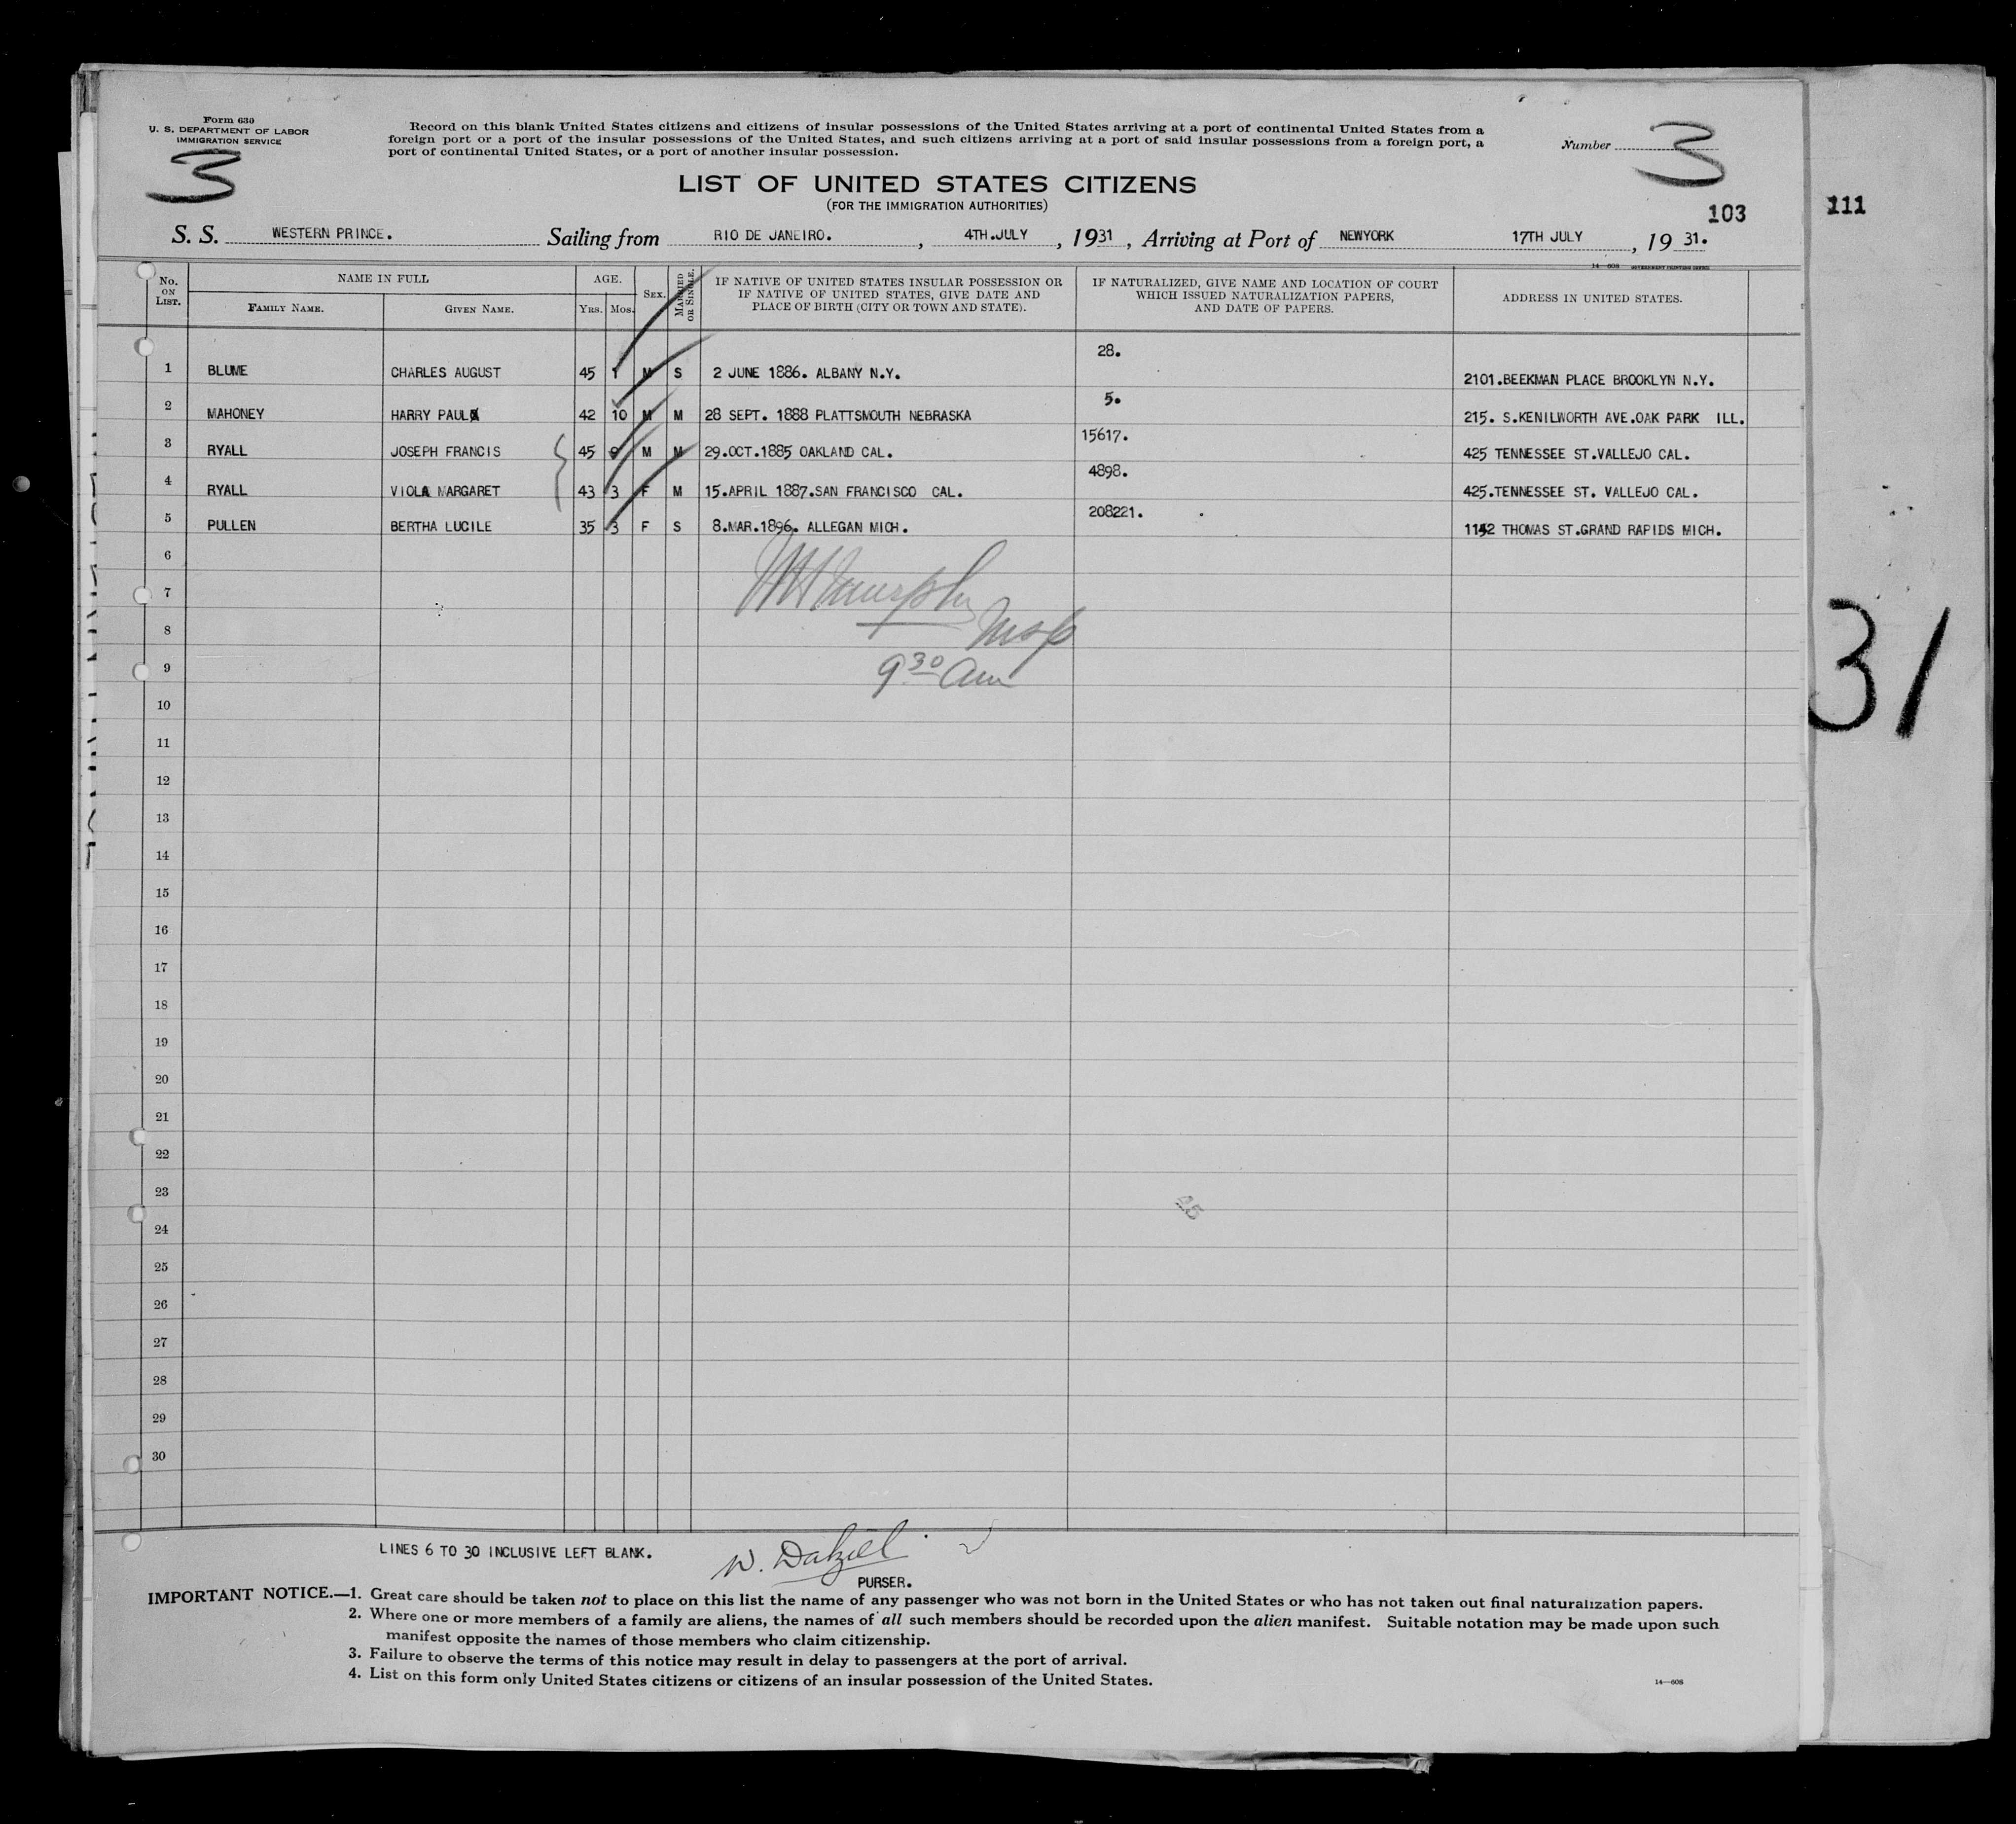 Form 630
U. S. DEPARTMENT OF LABOR
IMMIGRATION SERVICE
3
Record on this blank United States citizens and citizens of insular possessions of the United States arriving at a port of continental United States from a
foreign port or a port of the insular possessions of the United States, and such citizens arriving at a port of said insular possessions from a foreign port, a
port of continental United States, or a port of another insular possession.
Number 3
LIST OF UNITED STATES CITIZENS
(FOR THE IMMIGRATION AUTHORITIES)
103
111
S. S. WESTERN PRINCE. Sailing from RIO DE JANEIRO. , 4TH.JULY , 1931 , Arriving at Port of NEWYORK 17TH JULY , 19 31.
14—608 GOVERNMENT PRINTING OFFICE
No. ON LIST. NAME IN FULL FAMILY NAME. GIVEN NAME. AGE. YRS. MOS. SEX. MARRIED OR SINGLE. IF NATIVE OF UNITED STATES INSULAR POSSESSION OR IF NATIVE OF UNITED STATES, GIVE DATE AND PLACE OF BIRTH (CITY OR TOWN AND STATE). IF NATURALIZED, GIVE NAME AND LOCATION OF COURT WHICH ISSUED NATURALIZATION PAPERS, AND DATE OF PAPERS. ADDRESS IN UNITED STATES.
1 BLUME CHARLES AUGUST 45 1 M S 2 JUNE 1886. ALBANY N.Y. 28. 2101.BEEKMAN PLACE BROOKLYN N.Y.
2 MAHONEY HARRY PAUL 42 10 M M 28 SEPT. 1888 PLATTSMOUTH NEBRASKA 5. 215. S.KENILWORTH AVE.OAK PARK ILL.
3 RYALL JOSEPH FRANCIS 45 9 M M 29.OCT.1885 OAKLAND CAL. 15617. 425 TENNESSEE ST.VALLEJO CAL.
4 RYALL VIOLA MARGARET 43 3 F M 15.APRIL 1887.SAN FRANCISCO CAL. 4898. 425.TENNESSEE ST. VALLEJO CAL.
5 PULLEN BERTHA LUCILE 35 3 F S 8.MAR.1896. ALLEGAN MICH. 208221. 1142 THOMAS ST.GRAND RAPIDS MICH.
6
7 Murphy
8
9 9 30 Am
31
10
11
12
13
14
15
16
17
18
19
20
21
22
23
45
24
25
26
27
28
29
30
LINES 6 TO 30 INCLUSIVE LEFT BLANK. W. Dalziel
PURSER.
IMPORTANT NOTICE.—1. Great care should be taken not to place on this list the name of any passenger who was not born in the United States or who has not taken out final naturalization papers.
2. Where one or more members of a family are aliens, the names of all such members should be recorded upon the alien manifest. Suitable notation may be made upon such
manifest opposite the names of those members who claim citizenship.
3. Failure to observe the terms of this notice may result in delay to passengers at the port of arrival.
4. List on this form only United States citizens or citizens of an insular possession of the United States.
14—608